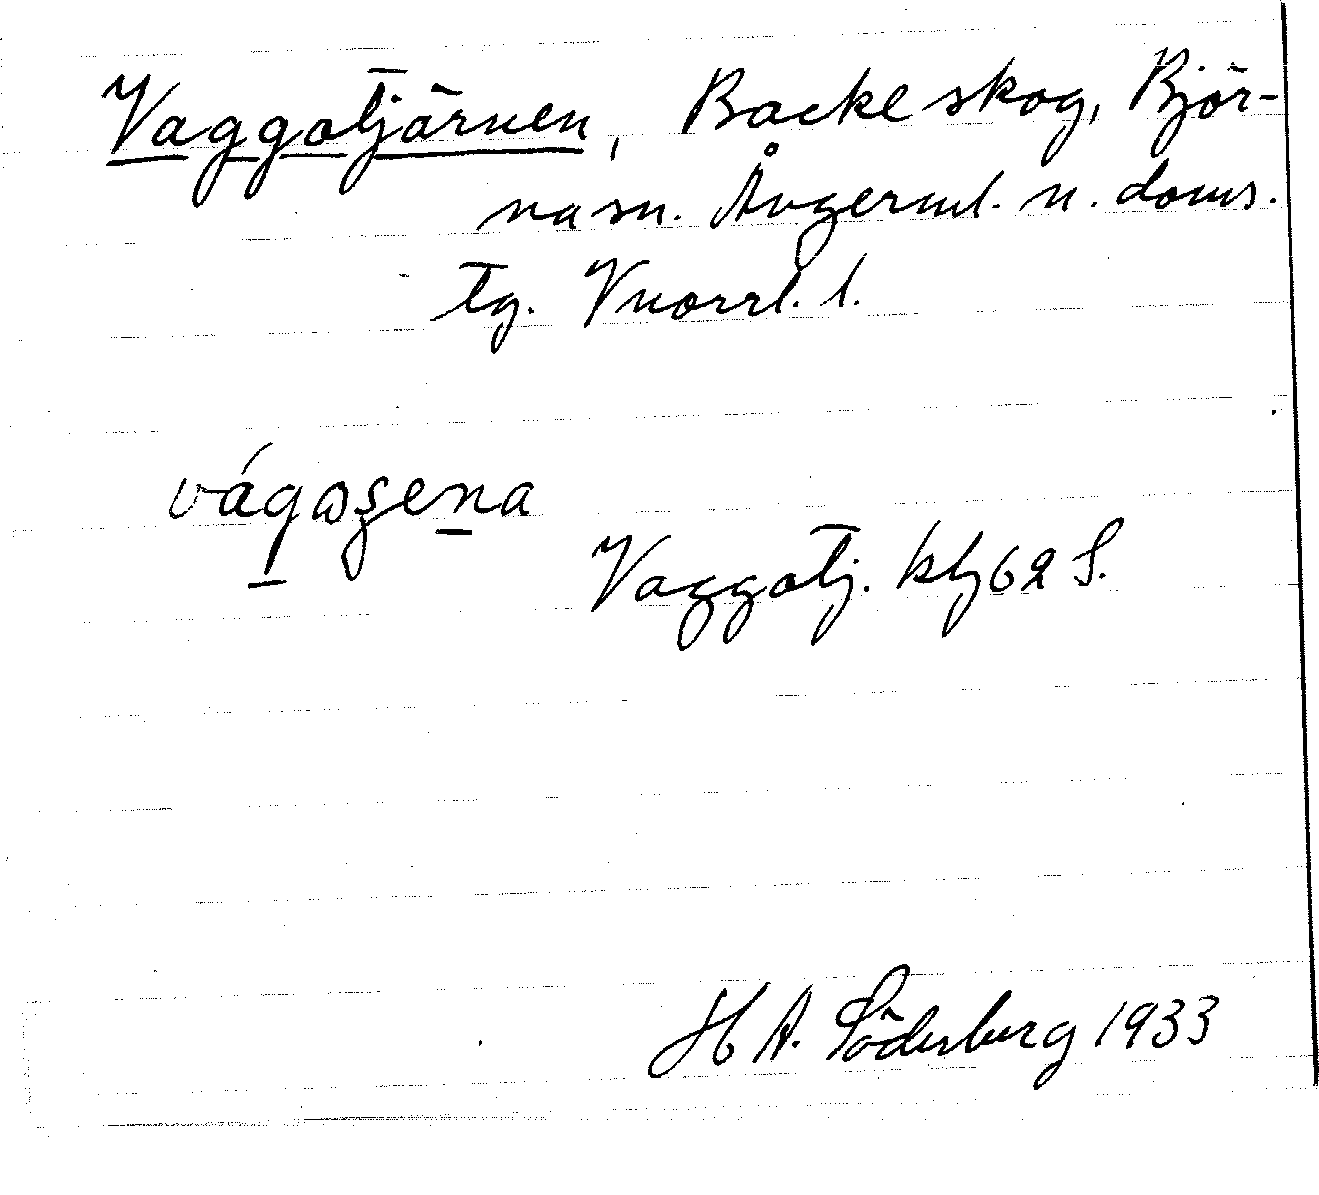 Vaggotjärnen, Backe skog, Björ-
na sn. Ångerml. n. doms.
tg. Vnorrl. l.
vágꞷşena
Vaggotj. kbl 62 S.
H A. Söderberg 1933